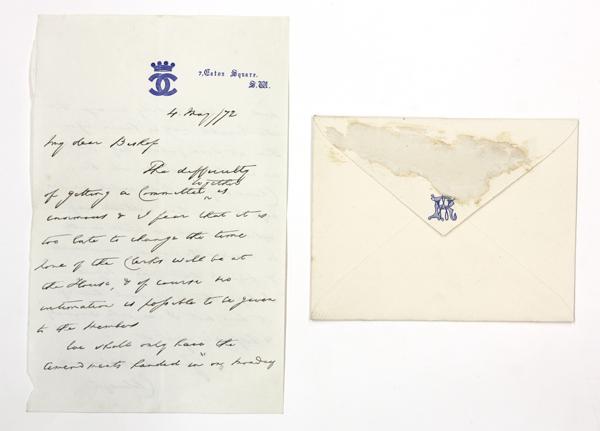 7, Eaton Square.
S.W.
4 May/72
My dear Bishop
The difficulty
of getting a Committee together is
enormous & I fear that it is
too late to change the time
None of the Clerks will be at
the House, & of course no
intimation is possible to be given
to the Members
We shall only have the
Amendments handed in on Monday